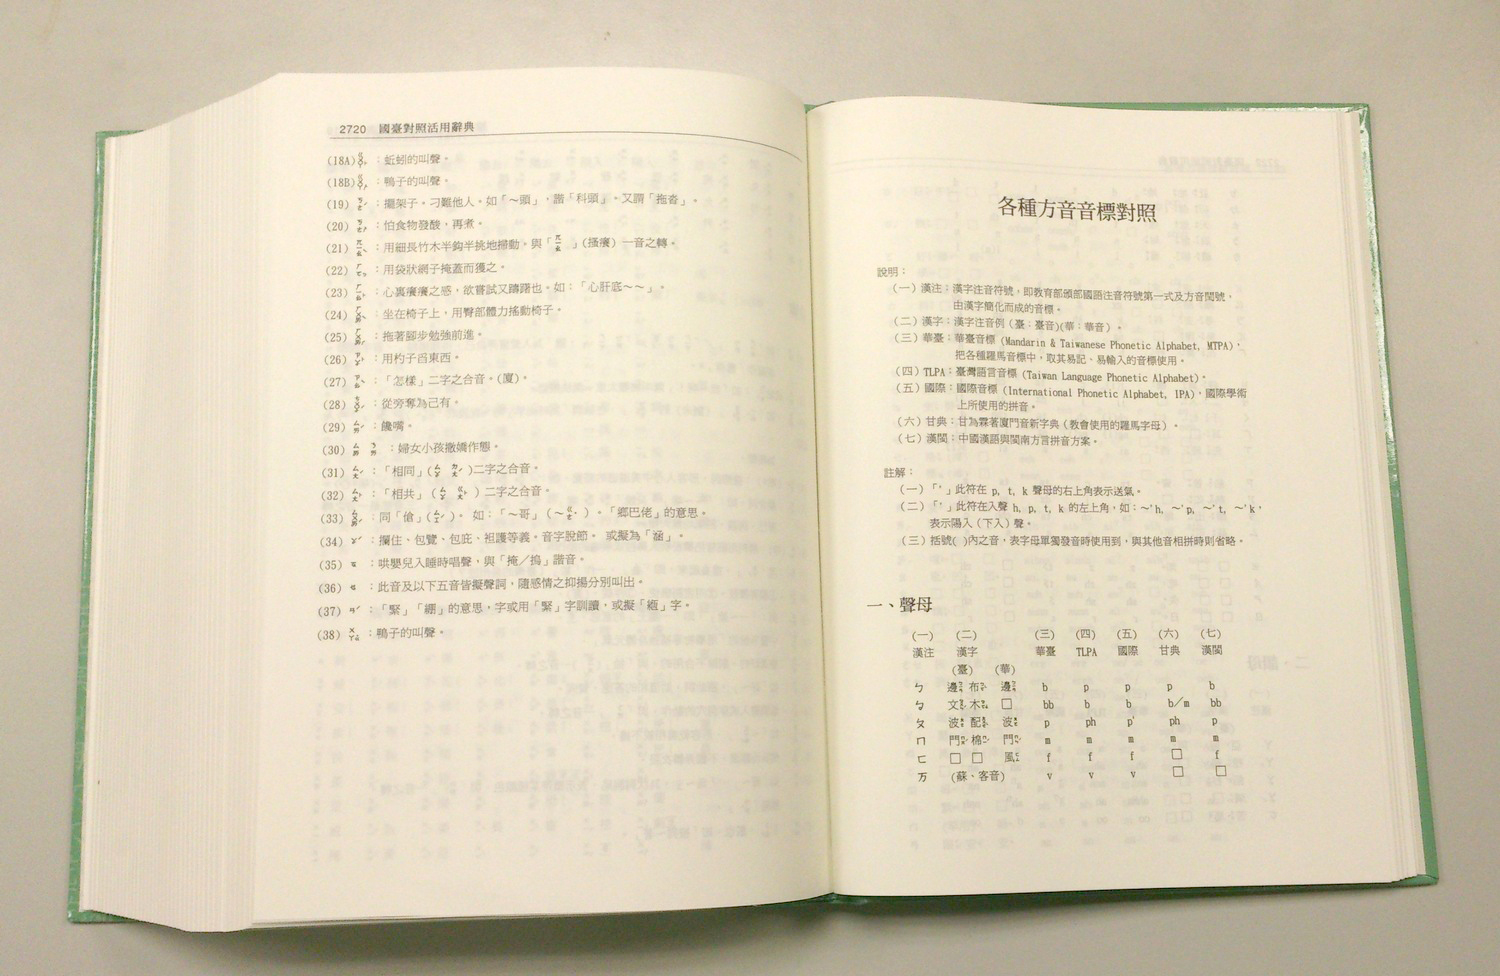 2720 國臺對照活用辭典
(18A) ：蚯蚓的叫聲。
(18B) ：鴨子的叫聲。
(19) ：擺架子。刁難他人。如「～頭」，諧「科頭」。又謂「拖沓」。
(20) ：怕食物發酸，再煮。
(21) ：用細長竹木半鈎半挑地掃動。與「 」(搔癢) 一音之轉。
(22) ：用袋狀網子掩蓋而獲之。
(23) ：心裏癢癢之感，欲嘗試又躊躇也。如：「心肝底～～」。
(24) ：坐在椅子上，用臀部體力搖動椅子。
(25) ：拖著腳步勉強前進。
(26) ：用杓子舀東西。
(27) ：「怎樣」二字之合音。(廈)。
(28) ：從旁奪為己有。
(29) ：饞嘴。
(30) ：婦女小孩撒嬌作態。
(31) ：「相同」( )二字之合音。
(32) ：「相共」( ) 二字之合音。
(33) ：同「傖」( )。 如：「～哥」(～ )。「鄉巴佬」的意思。
(34) ：攔住、包覽、包庇、袒護等義。音字脫節。 或擬為「涵」。
(35) ：哄嬰兒入睡時唱聲，與「掩／搗」諧音。
(36) ：此音及以下五音皆擬聲詞，隨感情之抑揚分別叫出。
(37) ：「緊」「繃」的意思，字或用「緊」字訓讀，或擬「絚」字。
(38) ：鴨子的叫聲。
各種方音音標對照
說明：
(一) 漢注：漢字注音符號，即教育部頒部國語注音符號第一式及方音閏號，
由漢字簡化而成的音標。
(二) 漢字：漢字注音例 (臺：臺音)(華：華音) 。
(三) 華臺：華臺音標 (Mandarin & Taiwanese Phonetic Alphabet, MTPA)，
把各種羅馬音標中，取其易記、易輸入的音標使用。
(四) TLPA：臺灣語言音標 (Taiwan Language Phonetic Alphabet)。
(五) 國際：國際音標 (International Phonetic Alphabet, IPA)，國際學術
上所使用的拼音。
(六) 甘典：甘為霖著廈門音新字典 (教會使用的羅馬字母) 。
(七) 漢閩：中國漢語與閩南方言拼音方案。
註解：
(一)「'」此符在 p, t, k 聲母的右上角表示送氣。
(二)「'」此符在入聲 h, p, t, k 的左上角，如：～'h, ～'p, ～'t, ～'k，
表示陽入 (下入) 聲。
(三) 括號( )內之音，表字母單獨發音時使用到，與其他音相拼時則省略。
一、聲母
(一) (二) (三) (四) (五) (六) (七)
漢注 漢字 華臺 TLPA 國際 甘典 漢閩
(臺) (華)
ㄅ 邊 布 邊 b p p p b
ㆠ 文 木 □ bb b b b/m bb
ㄆ 波 配 波 p ph p' ph p
ㄇ 門 棉 門 m m m m m
ㄈ □ □ 風 f f f □ f
万 (蘇、客音) v v v □ □